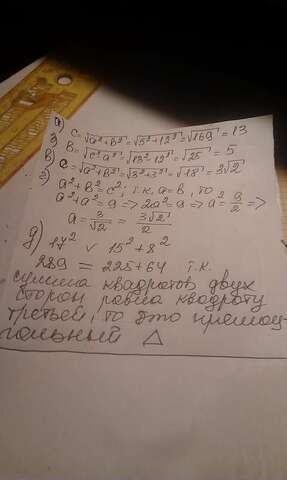 а) c=√a²+b²=√5²+12²=√169=13
б) b=√c²-a²=√13²-12²=√25=5
в) c=√a²+b²=√3²+3²=√18=3√2
г) a²+b²=c², т.к. a=b, то
a²+a²=9 => 2a²=9 => a²=9/2 =>
a=3/√2=3√2/2
д) 17² ∨ 15²+8²
289 = 225+64 т.к.
сумма квадратов двух
сторон равна квадрату
третьей, то это прямоу-
гольный △